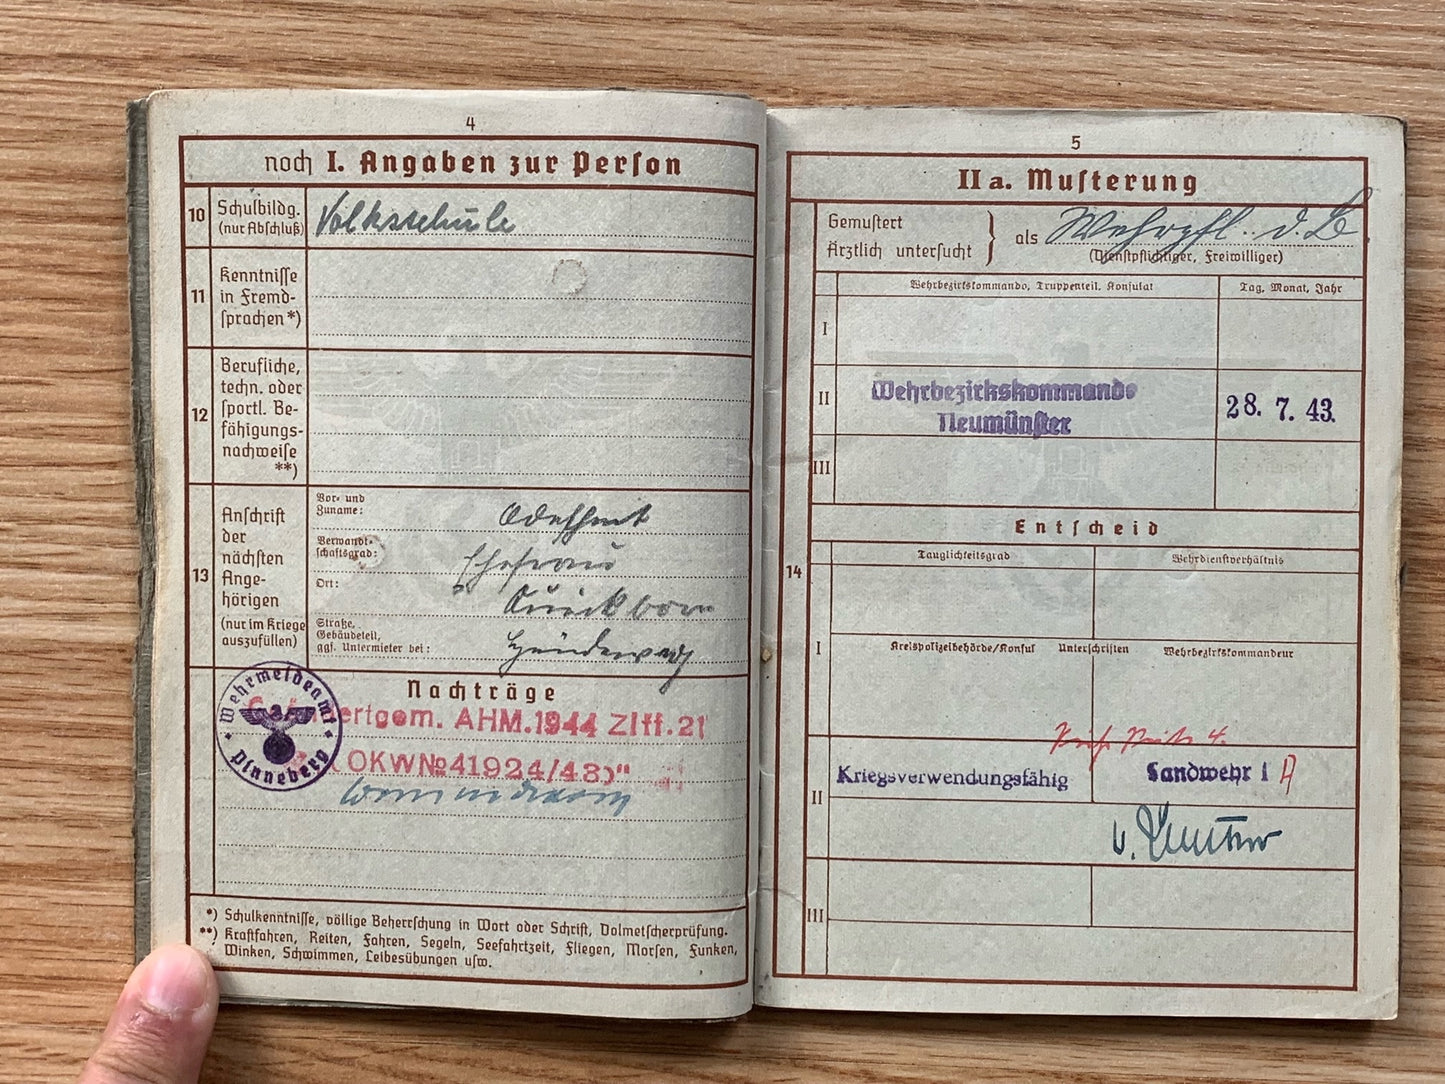 4
noch I. Angaben zur Person
10 Schulbildg. (nur Abschluß) Volksschule
11 Kenntnisse in Fremd-
sprachen *)
12 Berufliche,
techn. oder
sportl. Be-
fähigungs-
nachweise
**)
13 Anschrift
der
nächsten
Ange-
hörigen
(nur im Kriege
auszufüllen)
Vor- und
Zuname:
Verwandt-
schaftsgrad: Ehefrau
Ort: Quickborn
Straße,
Gebäudeteil,
ggf. Untermieter bei:
Nachträge
Wehrmeldeamt
Pinneberg
gem. AHM.1944 Ziff.21
(OKW№41924/43)"
*) Schulkenntnisse, völlige Beherrschung in Wort oder Schrift, Dolmetscherprüfung.
**) Kraftfahren, Reiten, Fahren, Segeln, Seefahrtzeit, Fliegen, Morsen, Funken,
Winken, Schwimmen, Leibesübungen usw.
5
IIa. Musterung
14
Gemustert
Ärztlich untersucht
als Wehrpfl. d. B
(Dienstpflichtiger, Freiwilliger)
Wehrbezirkskommando, Truppenteil, Konsulat Tag, Monat, Jahr
I
II Wehrbezirkskommando
Neumünster
28. 7. 43.
III
Entscheid
Tauglichkeitsgrad Wehrdienstverhältnis
I
Kreispolizeibehörde/Konsul Unterschriften Wehrbezirkskommandeur
II Kriegsverwendungsfähig Landwehr I A
III